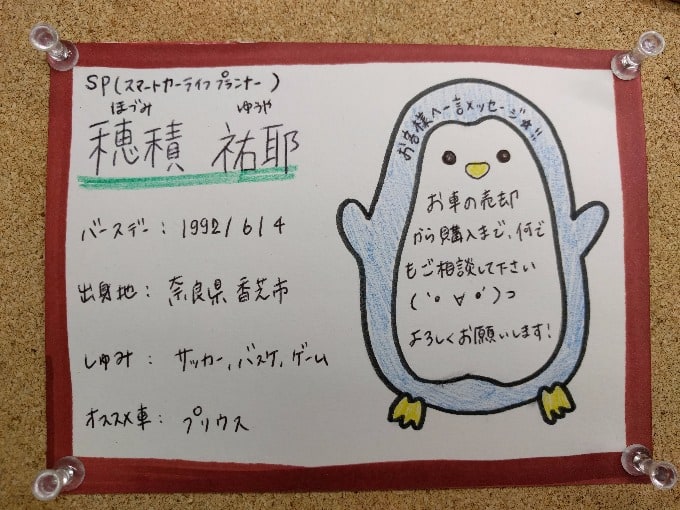 SP(スマートカーライフプランナー)
ほづみ ゆうや
穂積 祐耶
バースデー: 1992/6/4
出身地: 奈良県 香芝市
しゅみ: サッカー, バスケ, ゲーム
オススメ車: プリウス
お客様へ一言メッセージ☆!!
お車の売却
から購入まで、何で
もご相談して下さい
(‘• ∀ •’)つ
よろしくお願いします!